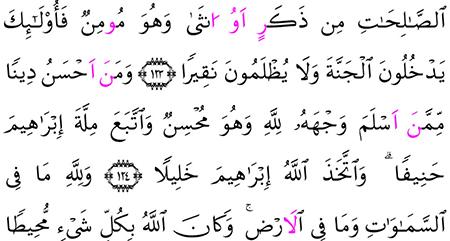 اَ۬لصَّٰلِحَٰتِ مِن ذَكَرٍ اَوُ ا۟نث۪ىٰ وَهُوَ مُومِنٞ فَأُوْلَٰٓئِكَ
يَدْخُلُونَ اَ۬لْجَنَّةَ وَلَا يُظْلَمُونَ نَقِيراٗ ١٢٣ وَمَنَ اَحْسَنُ دِيناٗ
مِّمَّنَ اَسْلَمَ وَجْهَهُۥ لِلهِ وَهُوَ مُحْسِنٞ وَاتَّبَعَ مِلَّةَ إِبْرَٰهِيمَ
حَنِيفاٗۖ وَاتَّخَذَ اَ۬للَّهُ إِبْرَٰهِيمَ خَلِيلاٗ ١٢٤ وَلِلهِ مَا فِے
اِ۬لسَّمَٰوَٰتِ وَمَا فِے اِ۬لَارْضِۖ وَكَانَ اَ۬للَّهُ بِكُلِّ شَےْءٖ مُّحِيطاٗ